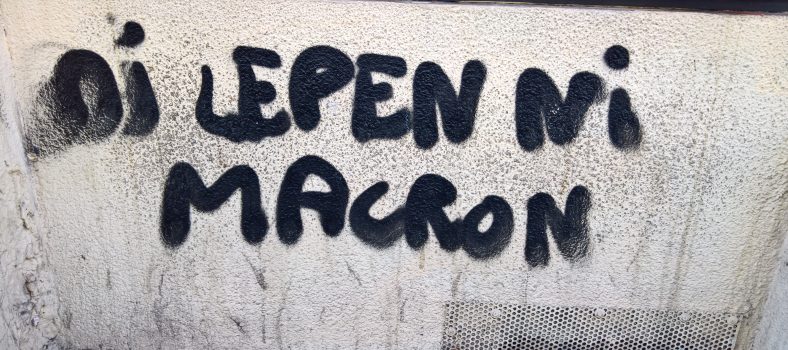 Ni LEPEN Ni
MACRON